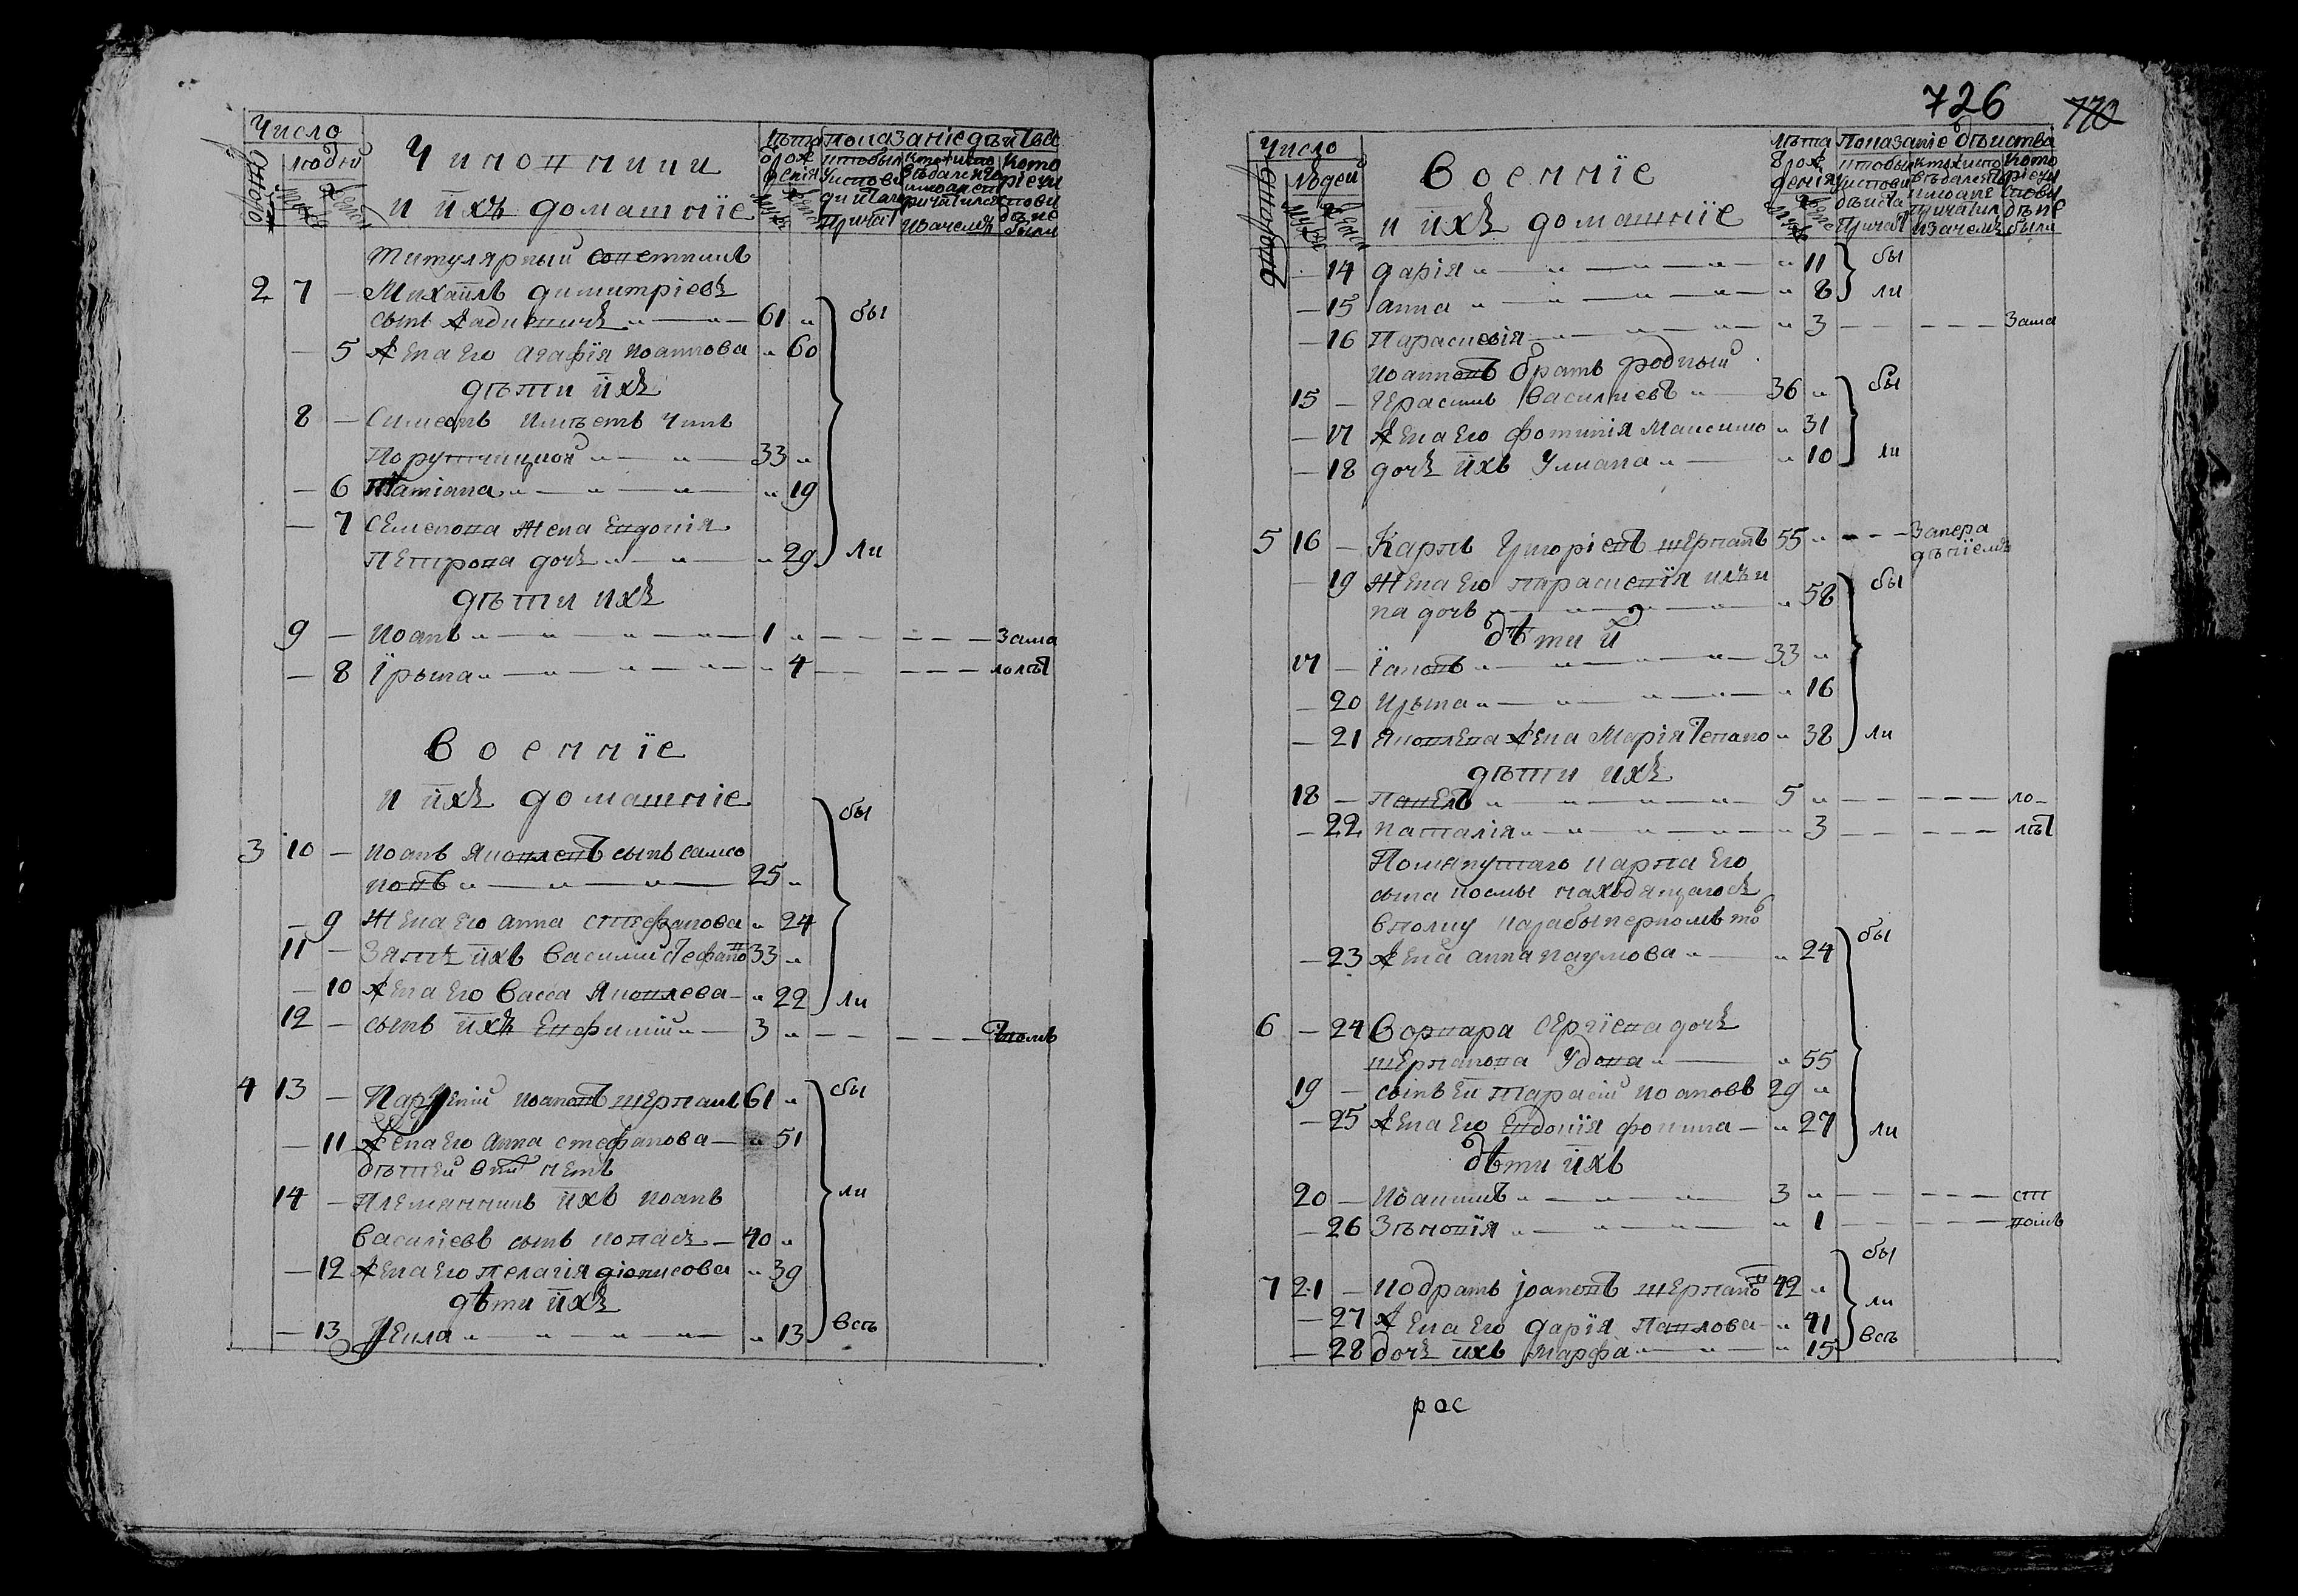 Число
людей
Чиновники
и ихъ домашніе
Титулярный советникъ
2 7 — Михаилъ Димитріевъ
сынъ 61 „ бы
— 5 Жена Его Агафія Иоаннова „ 60
дѣти ихъ
8 — Симеонъ имѣетъ чинъ
33 „
— 6 Татіана „ — „ — „ — „ 19
— 7 Семенова жена Евдокія
Петрова дочь „ — „ — „ 29 ли
дѣти ихъ
9 — Иоанъ „ — „ — „ — „ — 1 „ — — — — — зама
— 8 Їрына „ — „ — „ — „ — „ 4 — — — — — лолѣт
военніе
и ихъ домашніе
бы
3 10 — Иоанъ Яковлевъ сынъ само
новъ „ — „ — „ — 25 „
— 9 Жена его Анна Стефанова „ 24
11 — Зять ихъ Василий Стефанов 33 „
— 10 Жена Его Васса Яковлева — „ 22 ли
12 — сынъ ихъ Евфимій „ — 3 „ — — — — —
4 13 — Парфеній Иоановъ Шерпанъ 61 „ бы
— 11 Жена Его Анна Стефанова — „ 51
дѣтей нетъ
14 — Племянникъ ихъ Иоанъ ли
Василіевъ сынъ — 40 „
— 12 Жена Его Пелагія Діонисова „ 39
дѣти ихъ
— 13 Фекла „ — „ — „ — „ — „ 13 всѣ
726
770
Число
людей
военніе
и ихъ домашніе
— 14 Дарія „ — „ — „ — „ 11 бы
— 15 Анна „ — „ — „ — „ 8 ли
— 16 Параскевія — „ — „ — „ 3 — — — — — зама
Иоанновъ братъ родный
15 — Герасимъ Василиевъ „ — 36 „ бы
— 17 Жена Его Фотинія Максимо „ 31
— 18 дочь ихъ Улиана „ — „ 10 ли
5 16 — Карпъ Григоріевъ Шерпанъ 55 „ — — — Запера
дѣніемъ
— 19 Жена Его Параскевія Илъи бы
на дочь „ — „ — „ — „ 58
дѣти й
17 — Їаковъ „ — „ — „ — „ — 33 „
— 20 Ирына „ — „ — „ — „ 16
— 21 Яковлева жена Марія Степано „ 38 ли
дѣти ихъ
18 — Павелъ „ — „ — „ — 5 „ — — — — — ло —
— 22 Наталія „ — „ — „ — „ 3 — — — — — лѣт
Помянутаго Карпа Его
сына Космы находящагось
в полку
— 23 Жена Анна Наумова „ — „ 24 бы
6 — 24 Ворвара Сергіева дочь
Шерпанова Удова „ — „ 55
19 — сынъ Еи Тарасій Иоановъ 29 „
— 25 Жена Его Евдокія Фомина — „ 27 ли
дѣти ихъ
20 — Иоанникъ „ — „ — „ — 3 „ — — — — —
— 26 Зѣновія „ — „ — „ — „ 1 — — — — —
бы
7 21 — Кодратъ Їоановъ Шерпанов 42 „
ли
— 27 Жена Его Дарія Павлова — „ 41
— 28 дочь ихъ Марфа — „ — „ 15 всѣ
рос